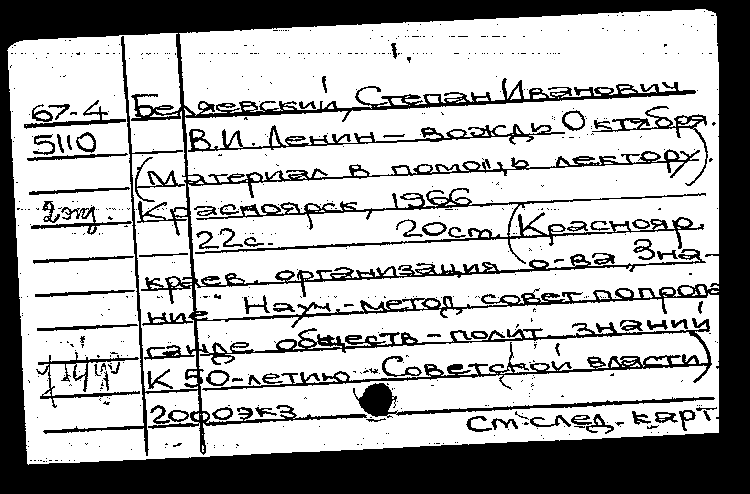 1.
67-4 Беляевский, Степан Иванович
5110 В.И. Ленин – вождь Октября.
(Материал в помощь лектору).
2 экз. Красноярск, 1966
22с. 20см. (Краснояр.
краев. организация о-ва "Зна-
ние" Науч.-метод. совет по пропа
ганде обществ-полит. знаний
К 50-летию Советской власти).
2000экз.
См. след. карт.